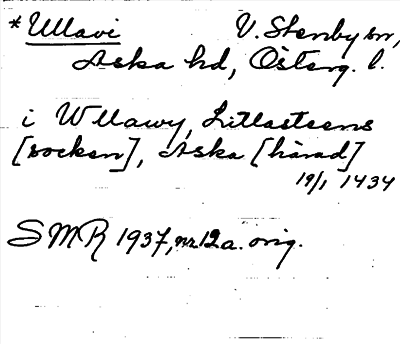 *Ullavi V. Stenby sn,
Aska hd, Österg. l.
i Wllawy, Litlasteens
[socken], Aska [härad]
19/1 1434
SMR 1937, nr 12a. orig.